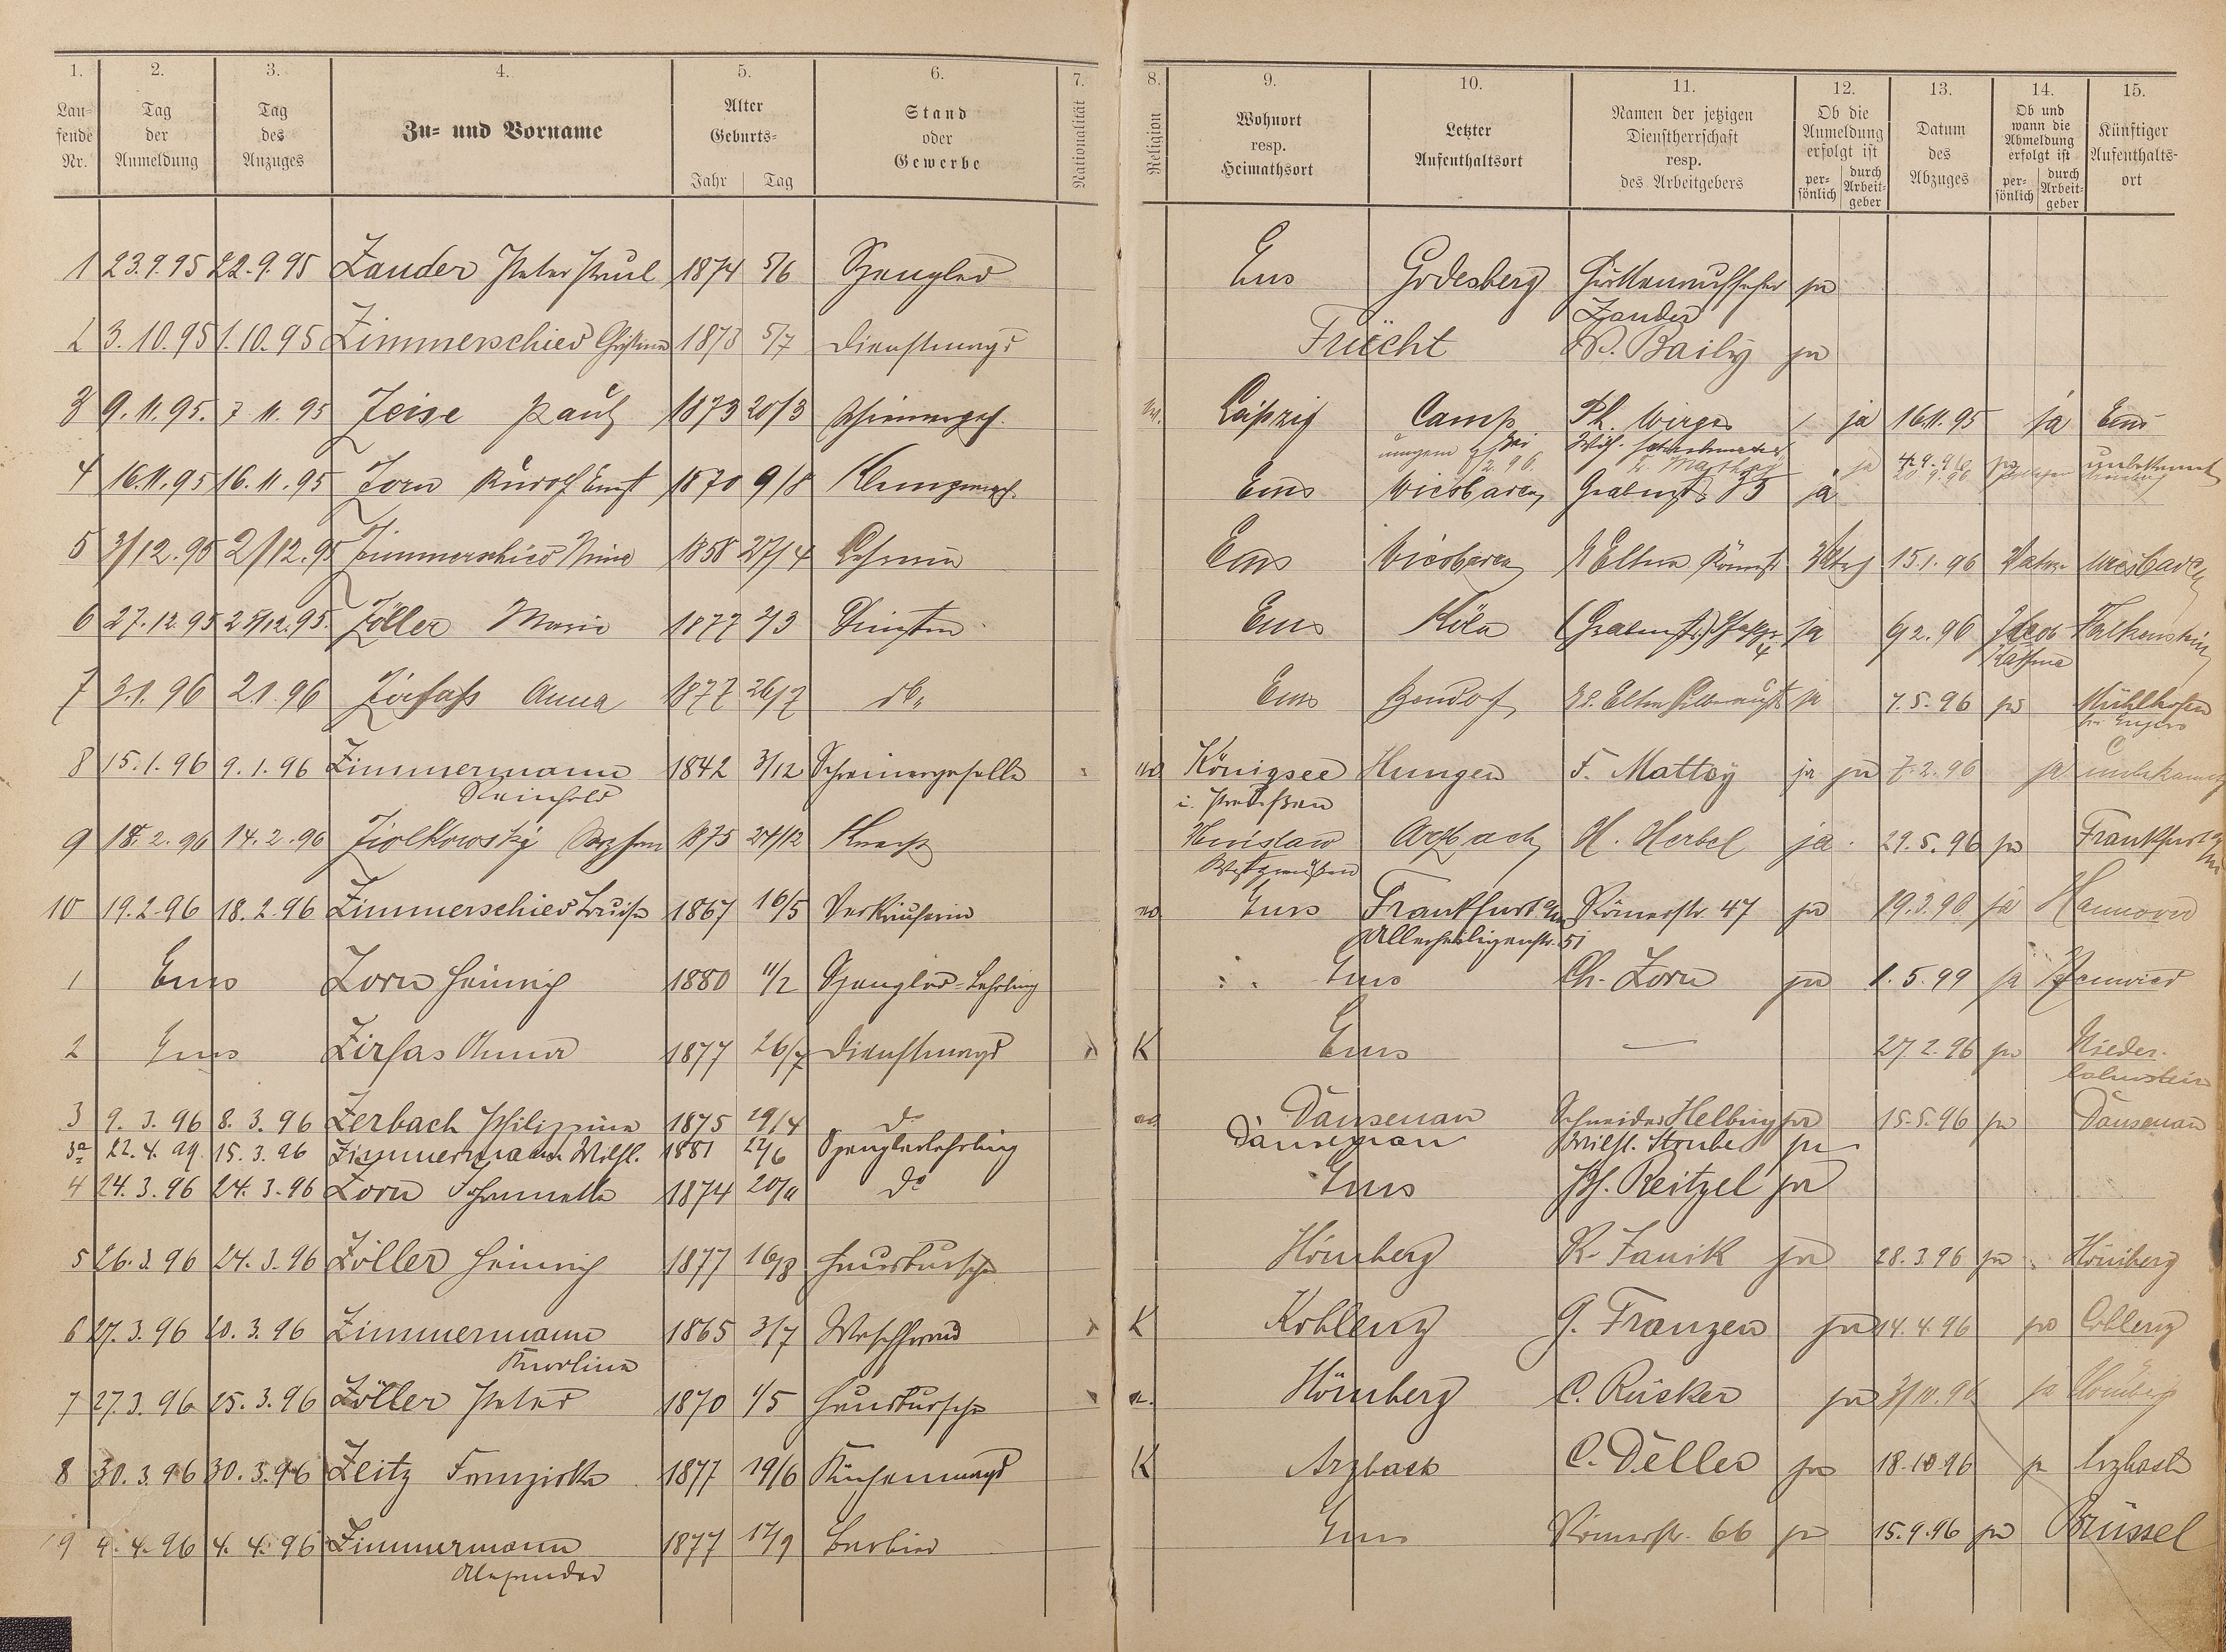 1. 2. 3. 4. 5. 6. 7. 8. 9. 10. 11. 12. 13. 14. 15.
Lau-
fende
Nr.
Tag
der
Anmeldung
Tag
des
Anzuges
Zu- und Vorname
Alter
Geburts-
Jahr Tag
Stand
oder
Gewerbe
Nationalität
Religion
Wohnort
resp.
Heimathsort
Letzter
Aufenthaltsort
Namen der jetzigen
Dienstherrschaft
resp.
des Arbeitgebers
Ob die
Anmeldung
erfolgt ist
per-
sönlich
durch
Arbeit-
geber
Datum
des
Abzuges
Ob und
wann die
Abmeldung
erfolgt ist
per-
sönlich
durch
Arbeit-
geber
Künftiger
Aufenthalts-
ort
1 23.9.95 22.9.95 Zander Peter Paul 1874 5/6 Spengler Ems Godesberg ja
Zander
2 3.10.95 1.10.95 Zimmerschied Christine 1873 5/7 Dienstmagd Frücht W. Baily ja
3 9.11.95. 7.11.95 Zeise Paul 1873 20/3 Schreinerges. Leipzig Camp Ph. Wirges ja 16.11.95 ja Ems
4 16.11.95 16.11.95 Zorn Rudolf Ernst 1870 9/8 Ems Wiesbaden Grabenstr ja 4.9.96 unbekannt
5 3/12.95 2/12.95 Zimmerschied 1858 27/4 Ems Wiesbaden Eltern 15.1.96 Wiesbaden
6 27.12.95 25/12.95. Zöller Marie 1877 2/3 Ems Köln ja 6/2.96 Falkenstein
7 3.1.96 2.1.96 Zirfass Anna 1877 26/7 do Ems Bendorf Eltern ja 7.5.96 ja Mühlhofen
b. Engers
8 15.1.96 9.1.96 Zimmermann 1842 3/12 Schreinergeselle Königsee Hungen F. Mattey ja ja 7.2.96 ja unbekannt
Reinhold i. Preußen
9 18.2.96 14.2.96 Ziolkowsky 1875 24/12 Knecht Arzbach H. Herbel ja 29.5.96 ja Frankfurt a/M
Westpreußen
10 19.2.96 18.2.96 Zimmerschied Luise 1867 16/5 Verkäuferin Ems Frankfurt a/M Römerstr. 47 ja 19.3.96 ja Hannover
Allerheiligenstr. 51
1 Ems Zorn Heinrich 1880 11/2 Spengler-Lehrling Ems Ch. Zorn ja 1.5.99 ja Neuwied
2 Ems Zirfas Anna 1877 26/7 Dienstmagd K Ems — 27.2.96 ja Nieder-
lahnstein
3 9.3.96 8.3.96 Zerbach Philippine 1875 29/4 do Dausenau Schneider Helbing ja 15.5.96 ja Dausenau
3a 22.4.99. 15.3.96 Zimmermann Wilh. 1881 24/6 Spenglerlehrling Dausenau Wilh. Straube ja
4 24.3.96 24.3.96 Zorn Johannette 1874 do Ems Ph. Reitzel ja
5 26.3.96 24.3.96 Zöller Heinrich 1877 16/8 Hausbursche Hömberg K. Fauik ja 28.3.96 ja Hömberg
6 27.3.96 20.3.96 Zimmermann 1865 3/7 Waschfrau K Koblenz G. Franzen ja 14.4.96 ja Coblenz
Karoline
7 27.3.96 25.3.96 Zöller Peter 1870 1/5 Hausbursche Hömberg C. Rücker ja 3/10.96 ja Hömberg
8 30.3.96 30.3.96 Zeitz Franziska 1877 19/6 Küchenmagd K Arzbach C. Deller ja 18.10.96 ja Arzbach
9 4.4.96 4.4.96 Zimmermann 1877 17/9 Barbier Ems Römerstr. 66 ja 15.9.96 ja Brüssel
Alexander